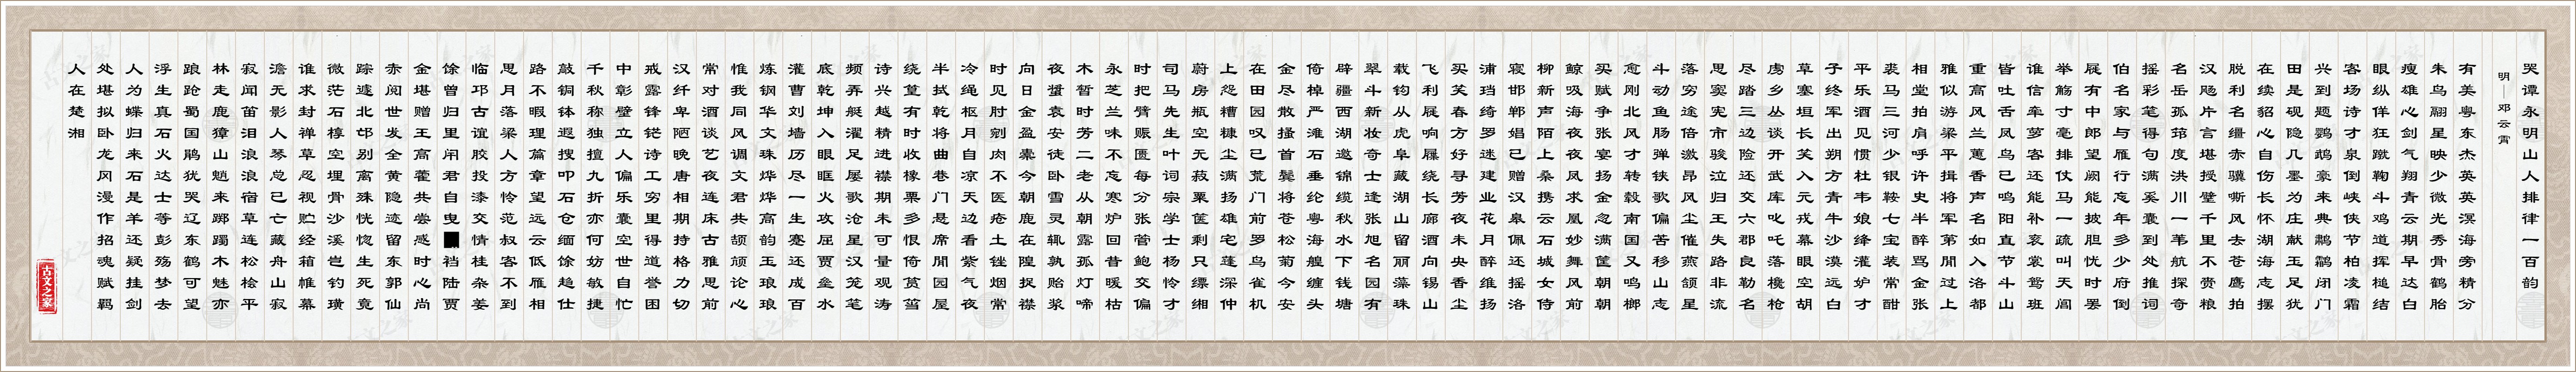 哭谭永明山人排律一百韵
明－邓云霄
有美粤东杰英英溟海旁精分
朱鸟翮星映少微光秀骨鹤胎
瘦雄心剑气翔青云期早达白
眼纵佯狂蹴鞠斗鸡道挥槌结
客场诗才泉倒峡侠节柏凌霜
兴到题鹦鹉豪来典鹔鹴闭门
田是砚隐几墨为庄献玉足犹
在续貂心自伤长怀湖海志摆
脱利名缰赤骥嘶风去苍鹰拍
汉飏片言堪授璧千里不赍粮
名岳孤筇度洪川一苇航探奇
摇彩笔得句满奚囊到处推词
伯名家与雁行忘年多少府倒
屣有中郎望阙能披胆忧时罢
举觞寸毫排仗马一疏叫天阊
谁信牵萝客还能补衮裳鸳班
皆吐舌凤鸟已鸣阳直节斗山
重高风兰蕙香声名如入洛都
雅似游梁平揖将军第閒过上
相堂拍肩呼许史半醉骂金张
裘马三河少银鞍七宝装尝酣
平乐酒见惯杜韦娘绛灌妒才
子终军出朔方青牛沙漠远白
草塞垣长笑入元戎幕眼空胡
虏乡丛谈开武库叱咤落欃枪
尽踏三边险还交六郡良勒名
思窦宪市骏泣归王失路非流
落穷途倍激昂风尘催燕颔星
斗动鱼肠弹铁歌偏苦移山志
愈刚北风才转毂南国又鸣榔
买赋争张宴扬金忽满筐朝朝
鲸吸海夜夜凤求凰妙舞风前
柳新声陌上桑携云石城女侍
寝邯郸娼已赠汉皋佩还摇洛
浦珰绮罗迷建业花月醉维扬
买笑春方好寻芳夜未央香尘
飞利屣响屧绕长廊酒向锡山
载钩从虎阜藏湖山留丽藻珠
翠斗新妆奇士逢张旭名园有
辟疆西湖邀锦缆秋水下钱塘
倚棹严滩石垂纶粤海艘缠头
金尽散搔首鬓将苍松菊今安
在田园叹已荒门前罗鸟雀机
上忍糟糠尘满扬雄宅蓬深仲
蔚房瓶空无菽粟筐剩只缥缃
司马先生叶词宗学士杨怜才
时把臂赈匮每分张管鲍交偏
永芝兰味不忘寒炉回昔暖枯
木暂时芳二老从朝露孤灯啼
夜螀袁安徒卧雪灵辄孰贻浆
向日金盈橐今朝鹿在隍捉襟
时见肘剜肉不医疮土锉烟常
冷绳枢月自凉天边看紫气夜
半拭乾将曲巷门悬席閒园屋
绕篁有时收橡栗多恨倚筼筜
诗兴越精进襟期未可量观涛
频弄艇濯足屡歌沧星汉笼笔
底乾坤入眼眶火攻屈贾垒水
灌曹刘墙历尽一生蹇还成百
炼钢华文珠烨烨高韵玉琅琅
惟我同风调文君共颉颃论心
常对酒谈艺夜连床古雅思前
汉纤卑陋晚唐相期持格力切
戒露锋铓诗工穷里得誉困
中彰壁立人偏乐囊空世自忙
千秋称独擅九折亦何妨敏捷
敲铜钵遐搜叩石仓缅馀趋仕
路不暇理篇章望远云低雁相
思月落梁人方怜范叔客不到
临邛古谊胶投漆交情桂杂姜
馀曾归里闬君自曳■裆陆贾
金堪赠王高藿共尝感时心尚
赤阅世发全黄隐迹留东郭仙
踪遽北邙别离殊恍惚生死竟
微茫石椁空埋骨沙溪岂钓璜
谁求封禅草忍视贮经箱帷幕
澹无影人琴总已亡藏舟山寂
寂闻笛泪浪浪宿草连松桧平
林走鹿獐山魈来踯躅木魅亦
踉跄蜀国鹃犹哭辽东鹤可望
浮生真石火达士等彭殇梦去
人为蝶归来石是羊还疑挂剑
处堪拟卧龙冈漫作招魂赋羁
人在楚湘
古文之家